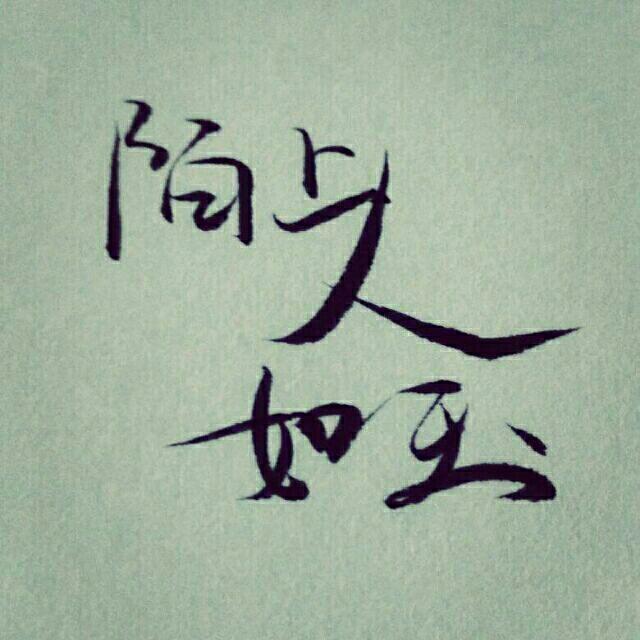 陌上人
如玉